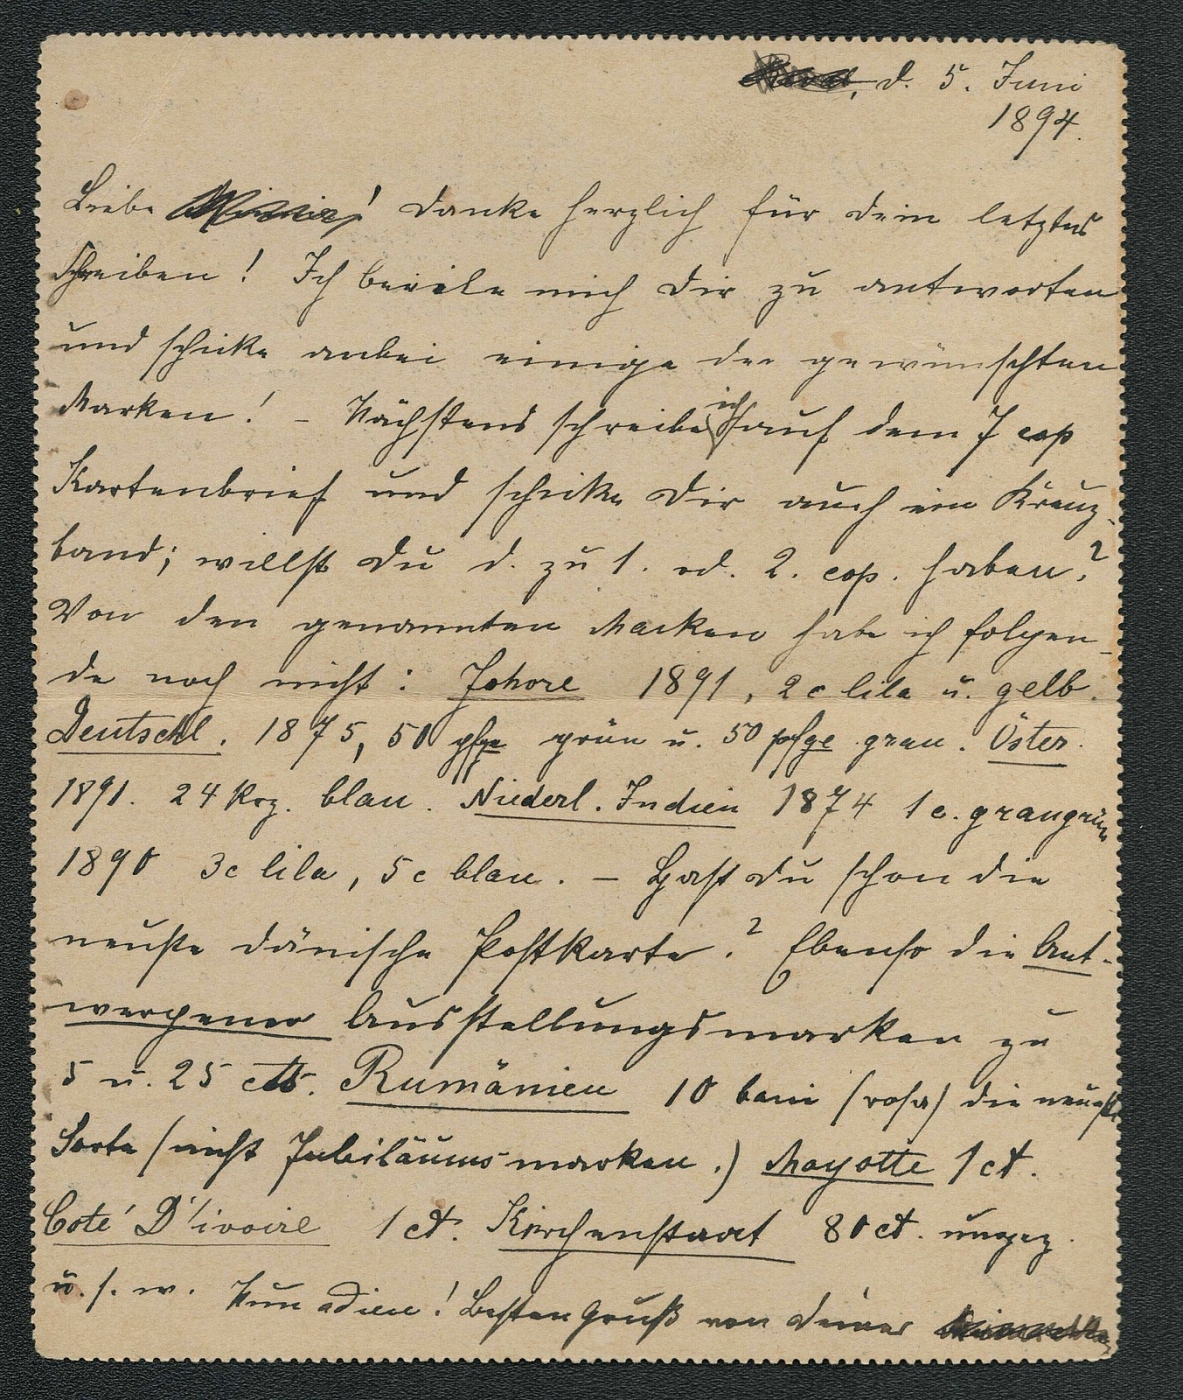 d. 5. Juni
1894.
Liebe ! Danke herzlich für dein letztes
Schreiben! Ich beeile mich dir zu antworten
und schicke anbei einige der gewünschten
Marken! – Nächstens schreibe ich auf dem 7 cop
Kartenbrief und schicke dir auch ein Kreuz-
band; willst du d. zu 1. od. 2. cop. haben?
Von den genannten Marken habe ich folgen-
de noch nicht: Johore 1891, 2c lila u. gelb.
Deutschl. 1875, 50 pfge grün u. 50 pfge grau. Öster.
1891. 24 krz. blau. Niederl. Indien 1874 1 c. graugrün
1890 3c lila, 5c blau. – Hast du schon die
neuste dänische Postkarte? Ebenso die Ant-
werpener Ausstellungsmarken zu
5 u. 25 cts. Rumänien 10 bani (rosa) die neuste
Sorte (nicht Jubiläumsmarken.) Mayotte 1 ct.
Coté D'ivoire 1 ct. Kirchenstaat 80 ct. ungez.
u. s. w. Nun adieu! Besten Gruß von deiner